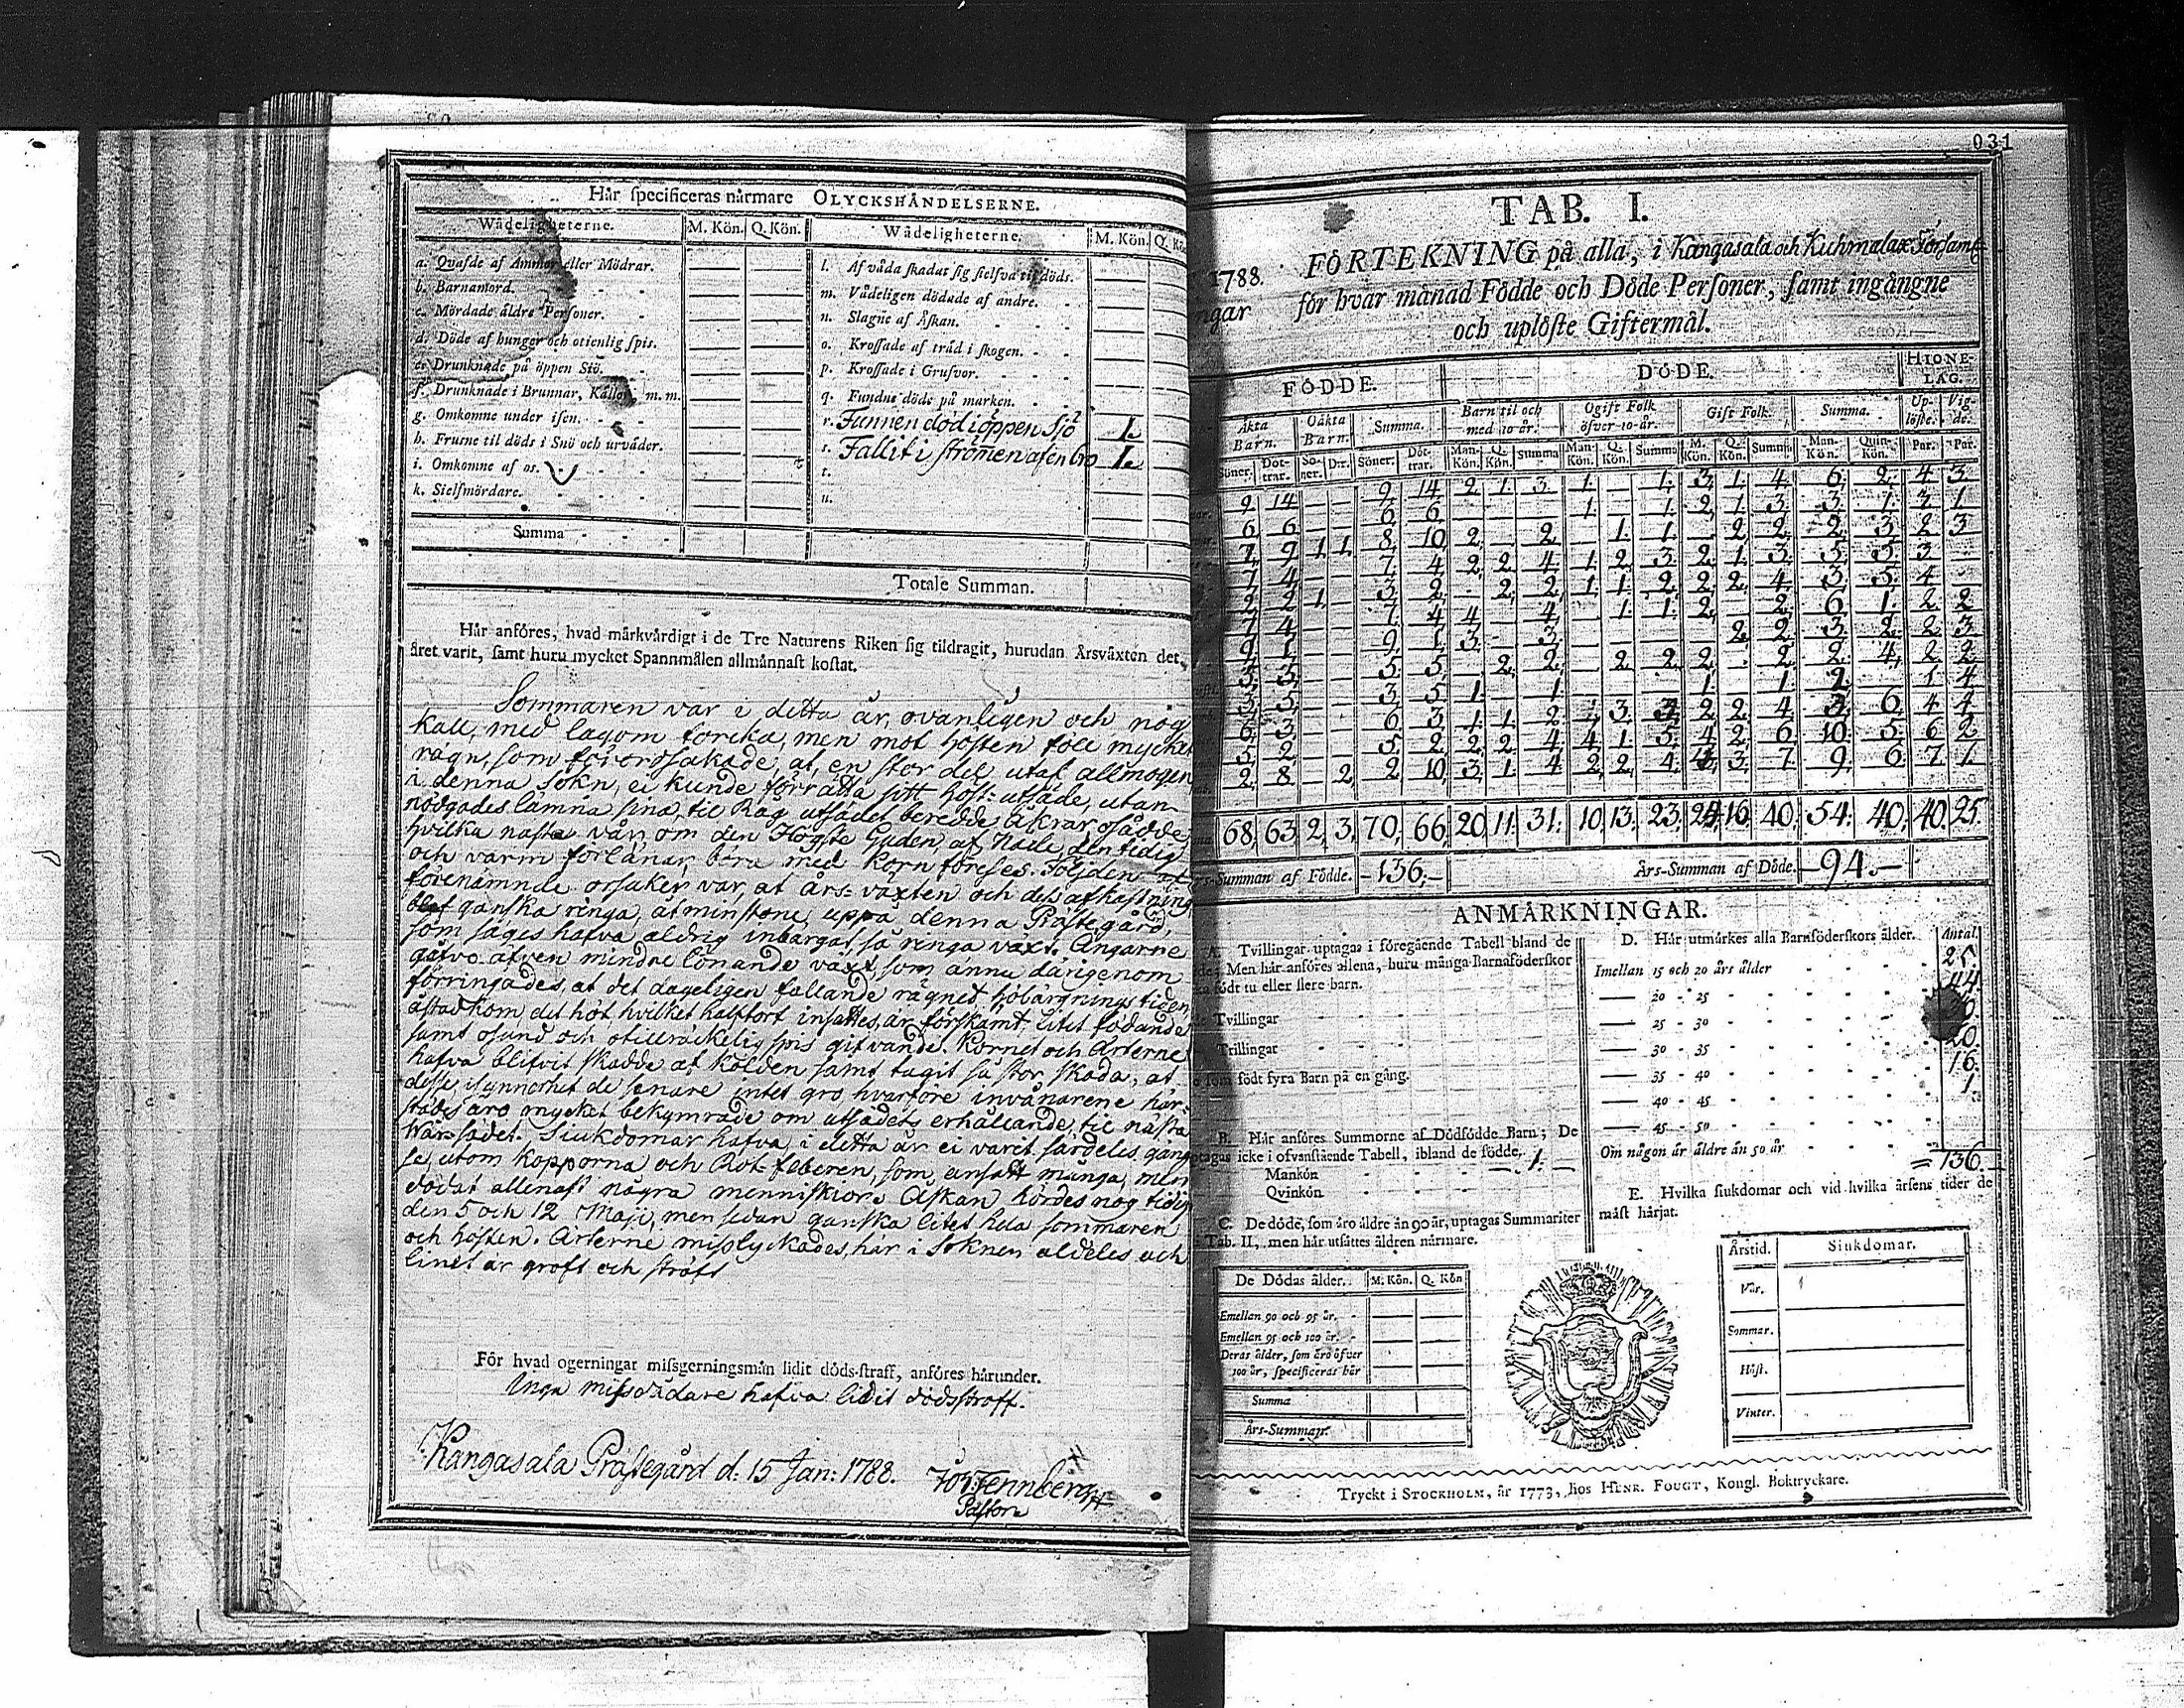 Hår specificeras nårmare OLYCKSHÅNDELSERNE.
Wådeligheterne. M. Kön. Q. Kön. Wådeligheterne. M. Kön. Q. Kö
a. Qvafde af Ammor eller Mödrar.
b. Barnamord.
c. Mördade åldre Personer.
d. Döde af hunger och otienlig spis.
e. Drunknade på öppen Siö.
f. Drunknade i Brunnar, Kållor, m. m.
g. Omkomne under isen.
h. Frusne til döds i Snö och urvåder.
i. Omkomne af os.
k. Sielfmördare.
Summa
l. Af våda skadat sig sielfva til döds.
m. Vådeligen dödade af andre.
n. Slagne af Åskan.
o. Krossade af tråd i skogen.
p. Krossade i Grufvor.
q. Fundne döde på marken.
r. Funnen död i öppen Sjö 1.
s. Fallit i strömen af en bro 1.
t.
u.
Totale Summan.
Hår anföres, hvad mårkvårdigt i de Tre Naturens Riken sig tildragit, hurudan Årsvåxten det
året varit, samt huru mycket Spannmålen allmånnast kostat.
Sommaren var i detta år, ovanligen och nog
kall, med lagom torcka, men mot hösten föll mycket
rägn, som förorsakade, at en stor del utaf allmogen
i denna sokn, ei kunde förrätta sitt höst-utsäde, utan
nödgades lämna sina, til Råg utsädet beredde åkrar osådde,
hvilka nästa vår, om den Högste Guden af Nåde den tidig
och varm förlänar, böra med Korn förses. Följden af
förenämnde orsaker var, at års-växten och dess afkastning
blef ganska ringa, åtminstone uppå denna Prästegård,
som säges hafva aldrig inbärgat så ringa växt. Ängarne
gåfvo äfven mindre lönande växt, som ännu därigenom
förringades, at det dageligen fallande rägnet höbärgnings tiden
åstadkom, det höt, hvilket halftort insattes, är förskämt, litet födande
samt osund och otillräckelig spis gifvande. Kornet och Ärterne
hafva blifvit skadde af kölden samt tagit så stor skada, at
desse, i synnerhet de senare intet gro, hvarföre invånarene här-
städes äro mycket bekymrade om utsädets erhållande til nästa
Vårsädet. Siukdomar hafva i detta år ei varit särdeles gäng
se, utom Kopporna och Röt-feberen, som ansatt många, men
dödat allenast några menniskior. Åskan hördes nog tidig
den 5 och 12 Maji, men sedan ganska litet hela sommaren
och hösten. Ärterne misslyckades här i Soknen aldeles och
linet är groft och sträft
För hvad ogerningar missgerningsmån lidit döds-straff, anföres hårunder.
Inga missdådare hafva lidit dödsstraff.
Kangasala Prästegård d: 15 Jan: 1788.
Pastor
031
TAB. I.
1788. FÖRTEKNING på alla, i Kangasala och Kuhmalax Församl
ngar för hvar månad Födde och Döde Personer, samt ingångne
och uplöste Giftermål.
FÖDDE. DÖDE. HIONE-LAG.
Åkta Barn. Oåkta Barn. Summa. Barn til och med 10 år. Ogift Folk öfver 10 år. Gift Folk. Summa. Up-löste. Vig-de.
Söner. Döt-trar. Sö-ner. Dr. Söner. Döt-trar. Man-Kön. Q. Kön. Summa Man-Kön. Q. Kön. Summa M. Kön. Q. Kön. Summa Man-Kön. Quin-Kön. Par. Par.
9 14 — — 9. 14. 2. 1. 3. 1. — 1. 3. 1. 4. 6. 2. 4. 3.
6 6 — — 6. 6. — — — 1. — 1. 2. 1. 3. 3. 1. 3. 1
7 9 1 1 8. 10. 2. — 2. — 1. 1. — 2. 2. 2. 3. 2. 3
7 4 — — 7. 4. 2. 2. 4. 1. 2. 3. 2. 1. 3. 5. 5. 3 —
2 2 1 — 3. 2. — 2. 2. 1. 1. 2. 2. 2. 4. 3. 5. 4 —
7 4 — — 7. 4. 4. — 4. — 1. 1. 2. — 2. 6. 1. 2. 2
9 1 — — 9. 1. 3. — 3. — — — — 2. 2. 3. 2. 2. 3
5 5 — — 5. 5. — 2. 2. — 2. 2. 2. — 2. 2. 4. 2. 2.
3 5 — — 3. 5. 1. — 1. — — — 1. — 1. 2. — 1. 4
6 3 — — 6. 3. 1. 1. 2. — 3. 3. 2. 2. 4. 3. 6. 4. 4.
5 2 — — 5. 2. 2. 2. 4. 4. 1. 5. 4. 2. 6. 10. 5. 6. 2
2 8 — 2 2. 10. 3. 1. 4. 2. 2. 4. 4. 3. 7. 9. 6. 7. 1.
68. 63 2. 3. 70. 66. 20. 11. 31. 10. 13. 23. 24. 16. 40. 54. 40. 40. 25.
rs-Summan af Födde. — 136. — Års-Summan af Döde. — 94. —
ANMÅRKNINGAR.
A. Tvillingar uptagas i föregående Tabell bland de
de; Men hår anföres allena, huru många Barnaföderskor
födt tu eller flere barn.
Tvillingar
Trillingar
som födt fyra Barn på en gång.
B. Hår anföres Summorne af Dödfödde Barn; De
ptagas icke i ofvanstående Tabell, ibland de födde.
Mankön 1.
Qvinkön
C. De döde, som åro åldre ån 90 år, uptagas Summariter
i Tab. II, men hår utsåttes åldren nårmare.
De Dödas ålder. M. Kön. Q. Kön
Emellan 90 och 95 år.
Emellan 95 och 100 år.
Deras ålder, som åro öfver
100 år, specificeras hår
Summa
Års-Summan.
D. Hår utmårkes alla Barnföderskors ålder. Antal.
Imellan 15 och 20 års ålder 25.
— 20 - 25 44.
— 25 - 30
— 30 - 35 20.
— 35 - 40 16.
— 40 - 45 1.
— 45 - 50
Om någon år åldre ån 50 år
= 136.
E. Hvilka siukdomar och vid hvilka årsens tider de
måst hårjat.
Årstid. Siukdomar.
Vår.
Sommar.
Höst.
Vinter.
Tryckt i STOCKHOLM, år 1773, hos HENR. FOUGT, Kongl. Boktryckare.